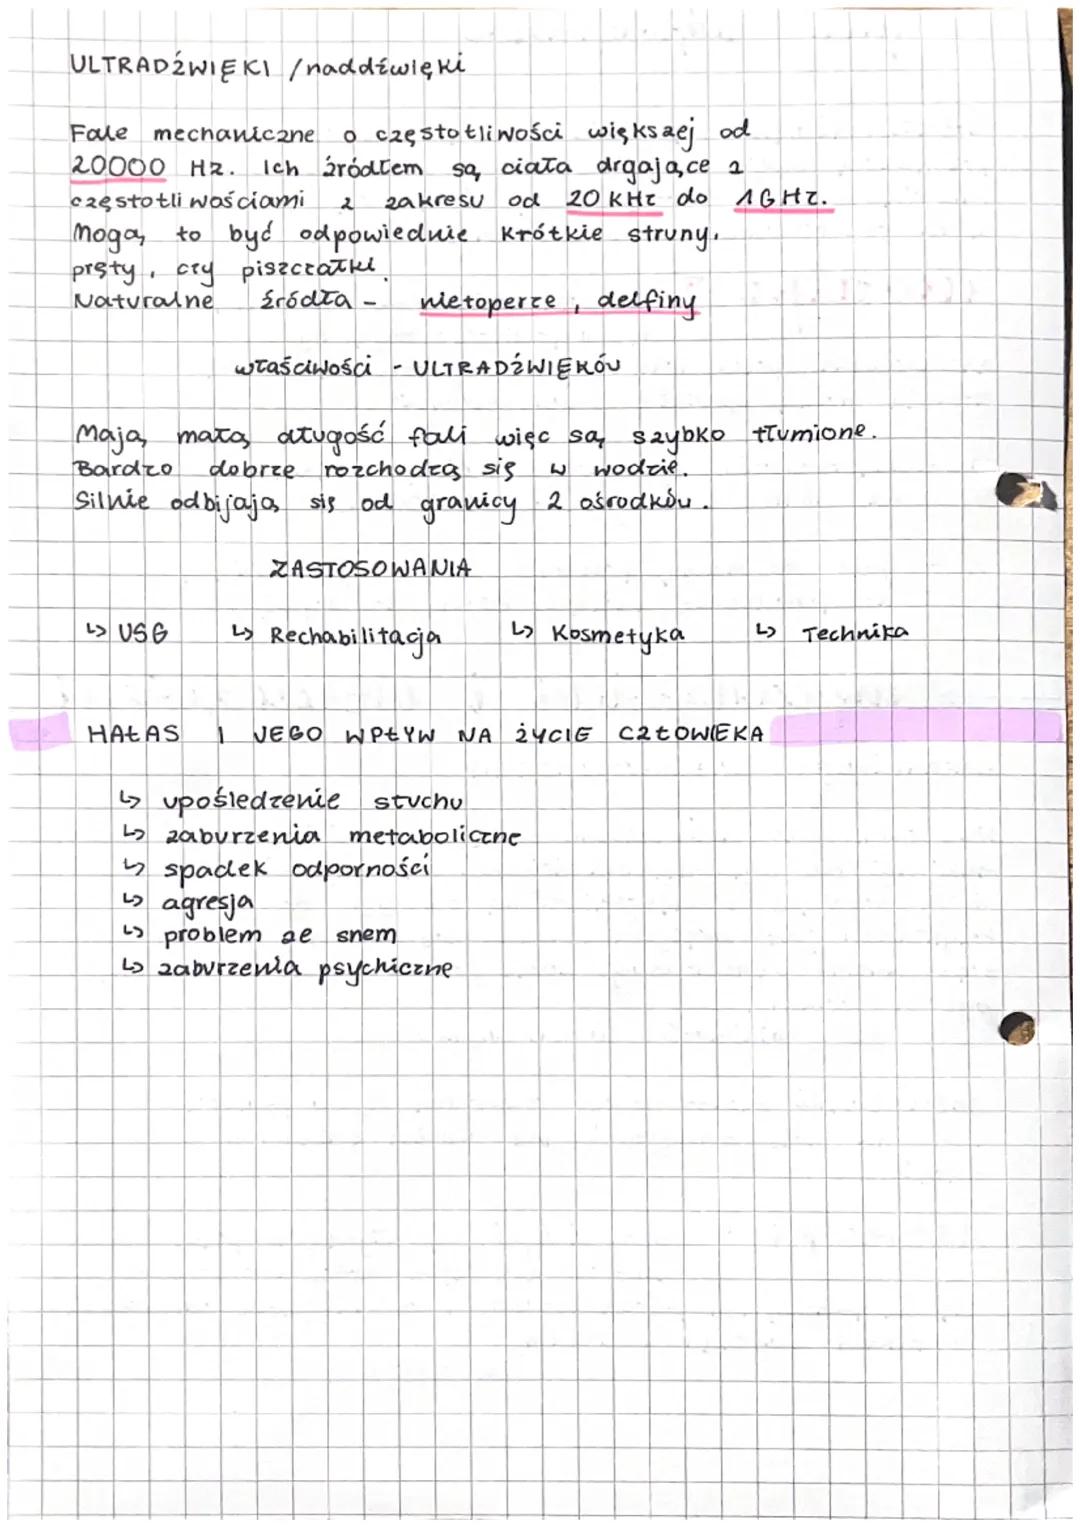 ULTRADŹWIĘKI /naddźwięki
Fale mechaniczne o częstotliwości większej od
20000 Hz. Ich źródłem są ciała drgające z
częstotliwościami z zakresu od 20 kHz do 1GHz.
Mogą to być odpowiednie krótkie struny,
pręty, czy piszczałki.
Naturalne źródła - nietoperze, delfiny
właściwości - ULTRADŹWIĘKÓW
Mają małą długość fali więc są szybko tłumione.
Bardzo dobrze rozchodzą się w wodzie.
Silnie odbijają się od granicy 2 ośrodków.
ZASTOSOWANIA
↳ USG ↳ Rechabilitacja ↳ Kosmetyka ↳ Technika
HAŁAS I JEGO WPŁYW NA ŻYCIE CZŁOWIEKA
↳ upośledzenie słuchu
↳ zaburzenia metaboliczne
↳ spadek odporności
↳ agresja
↳ problem ze snem
↳ zaburzenia psychiczne